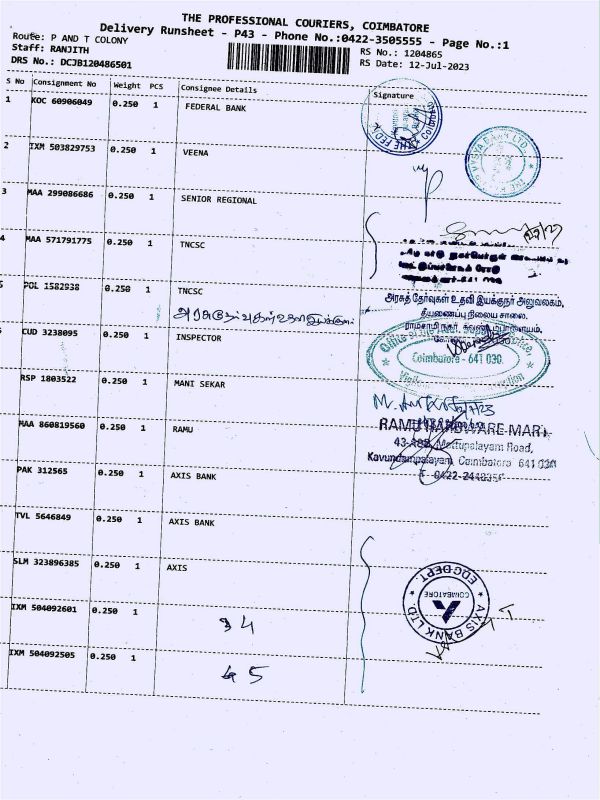 THE PROFESSIONAL COURIERS, COIMBATORE
Delivery Runsheet - P43 - Phone No.:0422-3505555 - Page No.:1
Route: P AND T COLONY
RS No.: 1204865
Staff: RANJITH
RS Date: 12-Jul-2023
DRS No.: DCJB120486501
S No Consignment No Weight PCS Consignee Details Signature
1 KOC 60906049 0.250 1 FEDERAL BANK
2 IXM 503829753 0.250 1 VEENA
3 MAA 299086686 0.250 1 SENIOR REGIONAL
4 MAA 571791775 0.250 1 TNCSC
5 POL 1582938 0.250 1 TNCSC
அரசுத் தேர்வுகள் உதவி இயக்குநர் அலுவலகம்,
தீயணைப்பு நிலைய சாலை.
CUD 3238095 0.250 1 INSPECTOR
Coimbatore - 641 030.
RSP 1803522 0.250 1 MANI SEKAR
MAA 860819560 0.250 1 RAMU
RAMU HARDWARE MART
Mettupalayam Road,
Kavundampalayam, Coimbatore
PAK 312565 0.250 1 AXIS BANK
TVL 5646849 0.250 1 AXIS BANK
SLM 323896385 0.250 1 AXIS
EDC DEPT.
COIMBATORE
AXIS BANK LTD.
IXM 504092601 0.250 1
34
IXM 504092505 0.250 1
45